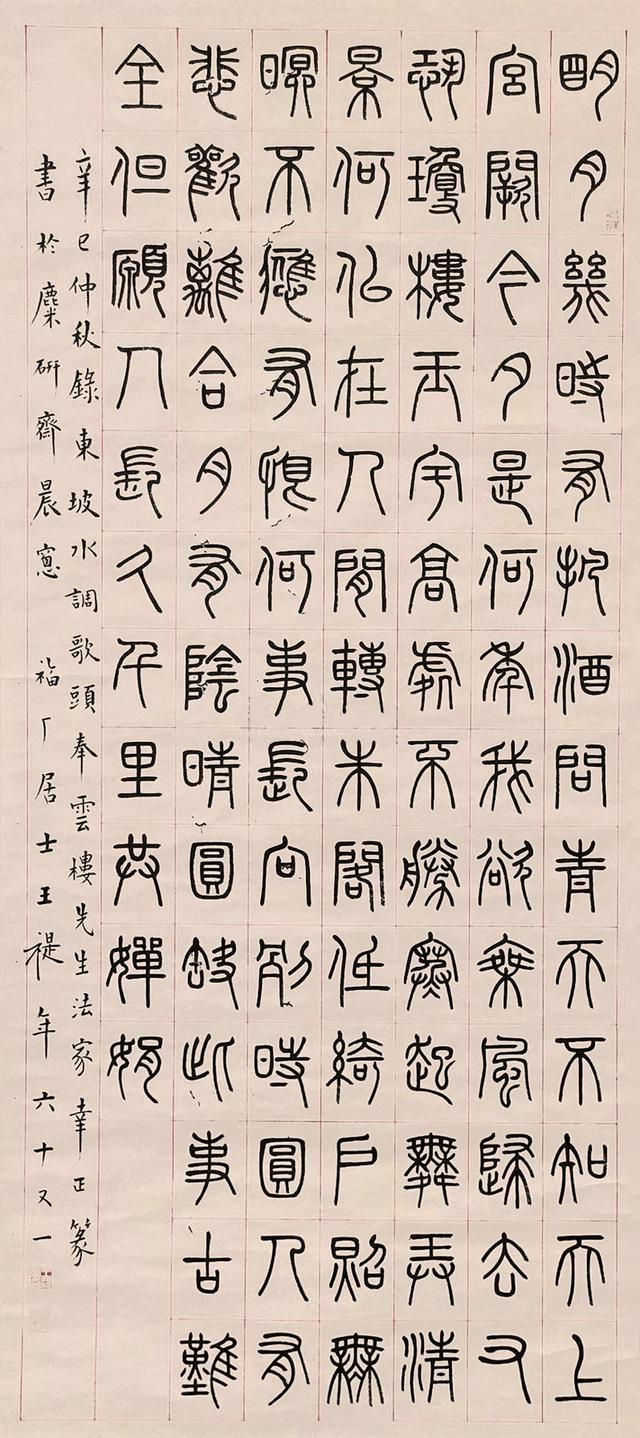 明月幾時有把酒問青天不知天上
宮闕今夕是何年我欲乘風歸去又
恐瓊樓玉宇高處不勝寒起舞弄清
景何似在人間轉朱閣低綺戶照無
瞑不應有恨何事長向別時圓人有
悲歡離合月有陰晴圓缺此事古難
全但願人長久千里共嬋娟
辛巳仲秋錄東坡水調歌頭奉雲樓先生法家幸正篆
書於麋研齋晨窓 福厂居士王禔年六十又一